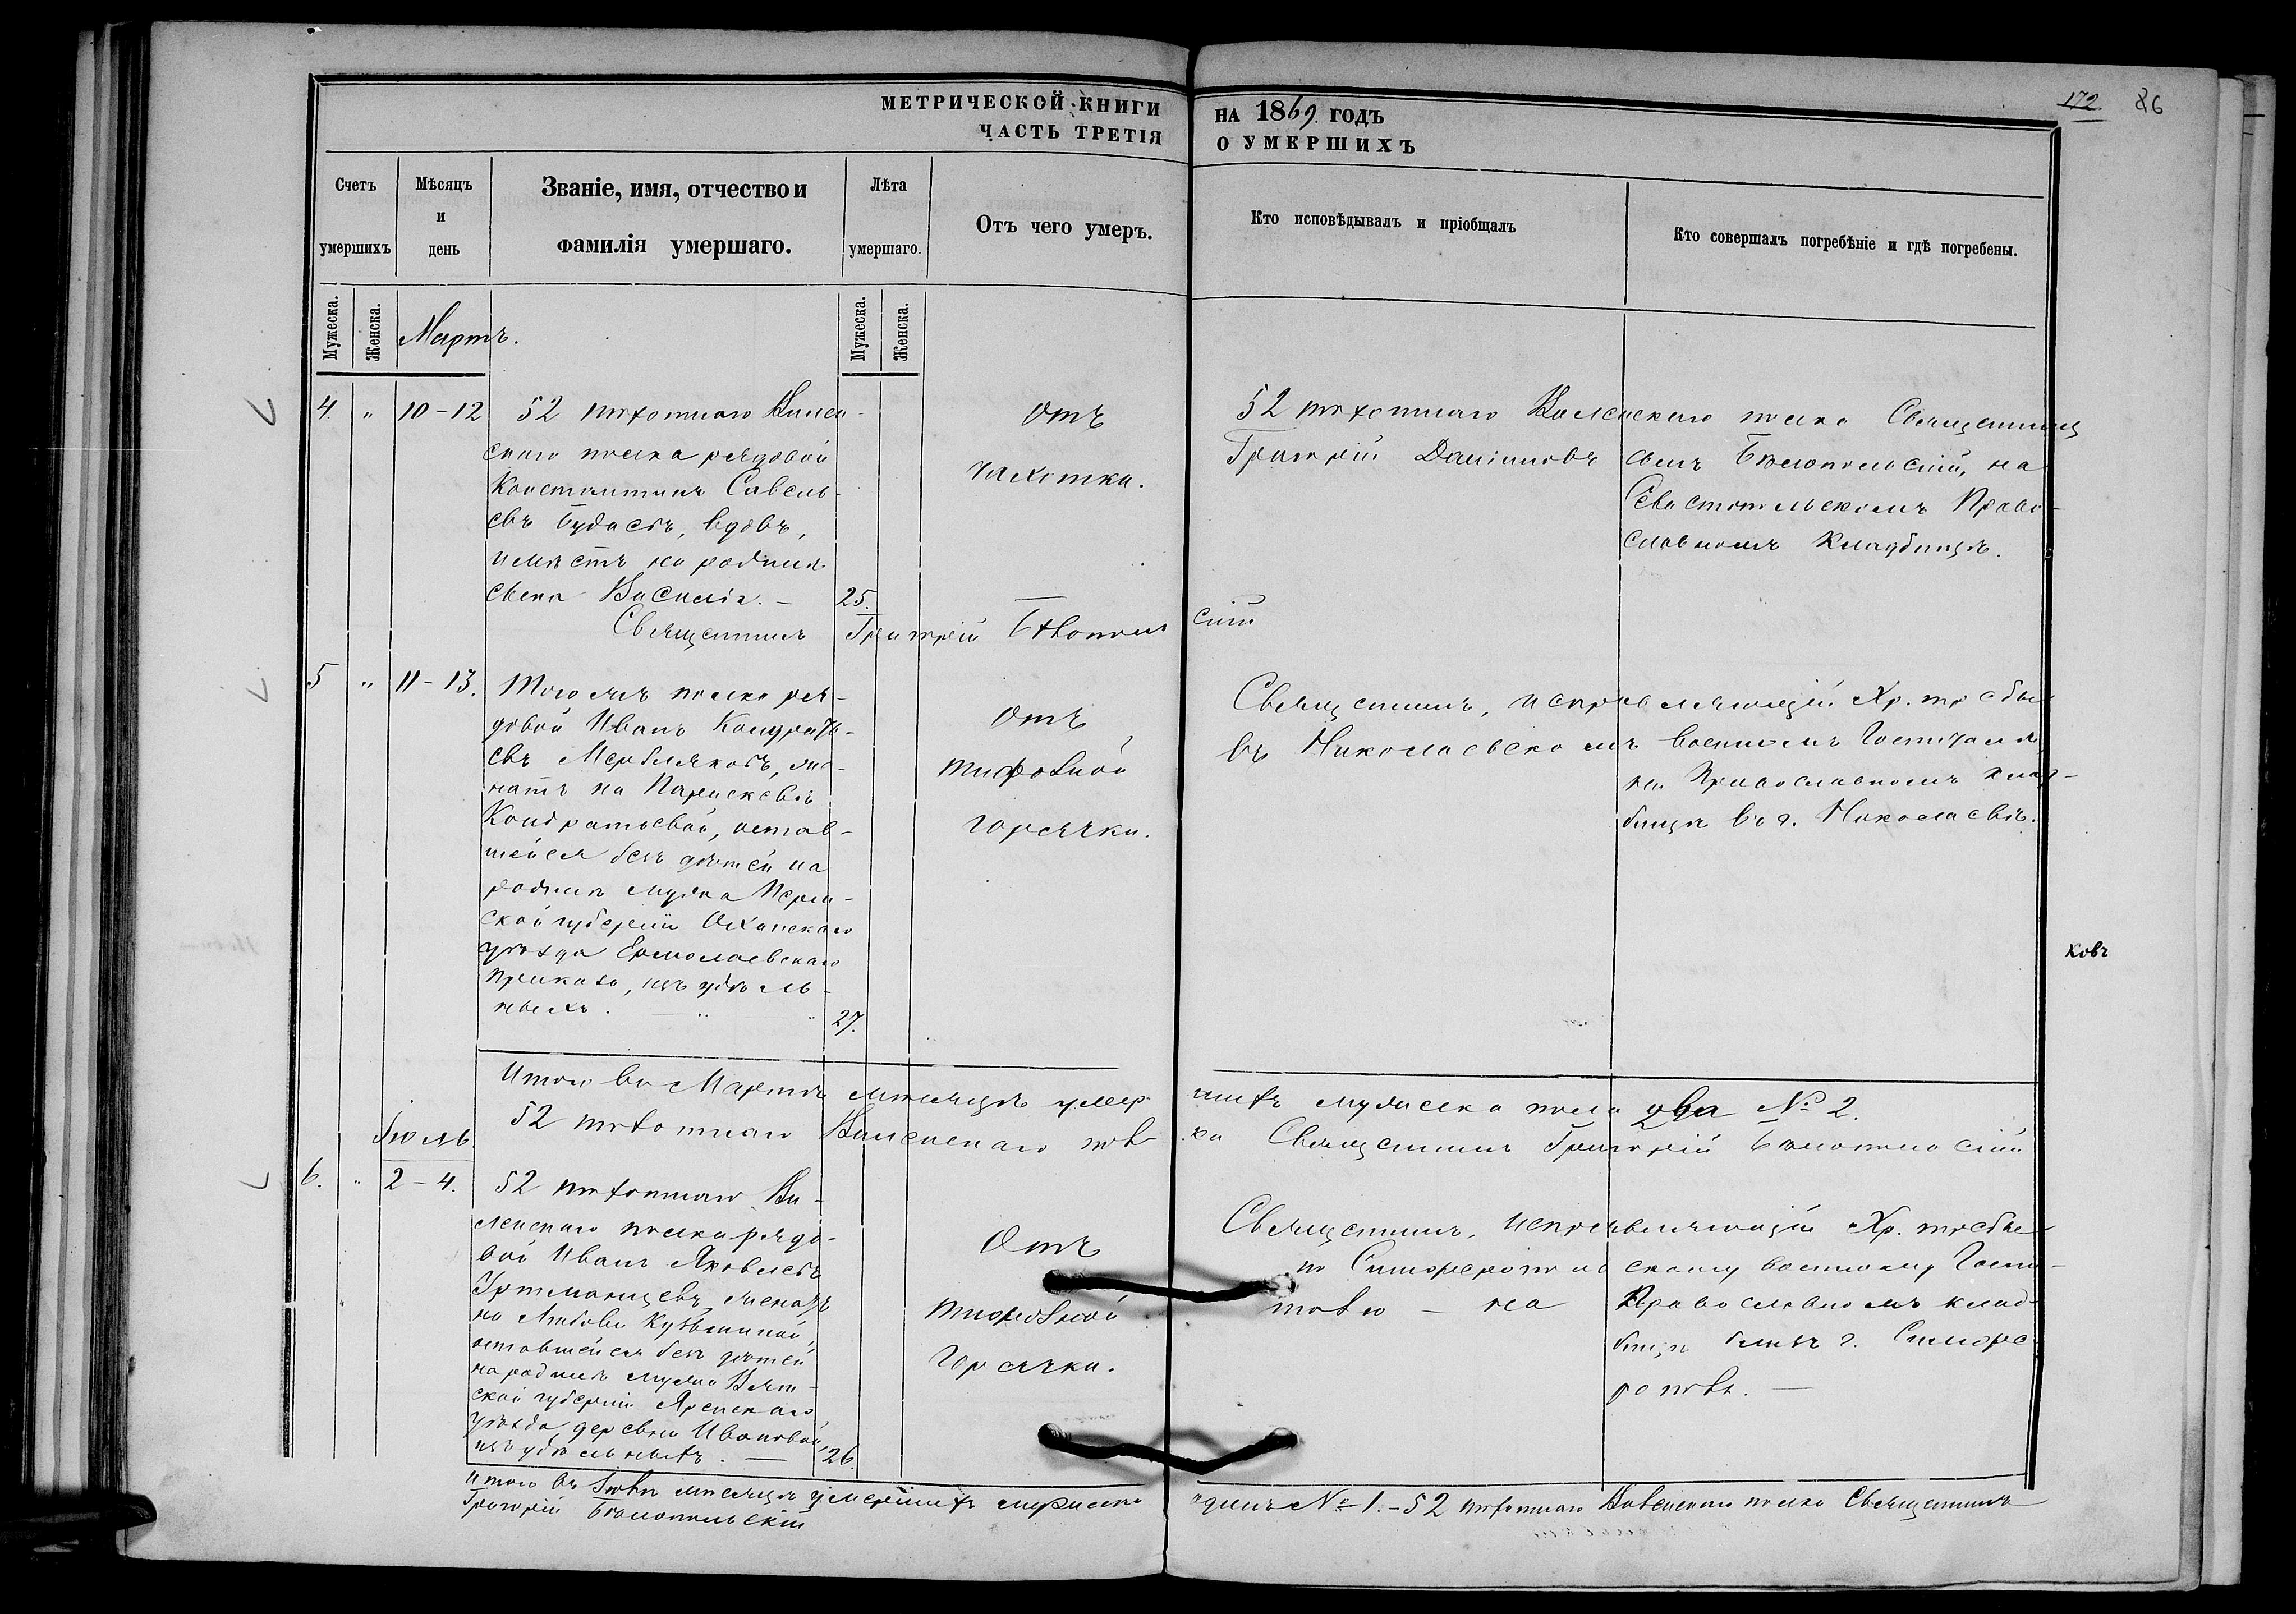 172. 86
МЕТРИЧЕСКОЙ КНИГИ НА 1869 ГОДЪ
ЧАСТЬ ТРЕТІЯ О УМЕРШИХЪ
Счетъ умершихъ
Мѣсяцъ и день
Званіе, имя, отчество и фамилія умершаго.
Лѣта умершаго.
Отъ чего умеръ.
Кто исповѣдывалъ и пріобщалъ
Кто совершалъ погребѣніе и гдѣ погребены.
Мужеска. Женска.
Мартъ.
Мужеска. Женска.
4. " 10-12
52 пѣхотнаго Вилен-
скаго полка рядовой
Константинъ Савель-
евъ вдовъ,
имѣетъ на родинѣ
сына Василія. — 25.
Отъ
чахотки.
52 пѣхотнаго Виленскаго полка Священникъ
Григорій Даніиловъ сынъ Бѣлопольскій, на
Севастопольскомъ Право-
славномъ кладбищѣ.
Священникъ Григорій Бѣлопольскій
5 " 11-13.
Того жъ полка ря-
довой Иванъ Кондрать-
евъ Мерзляковъ, же-
натъ на Параскевѣ
Кондратьевой, остав-
шейся безъ дѣтей на
родинѣ мужа Перм-
ской губерніи Оханскаго
уѣзда Ермолаевскаго
приказа, изъ удѣль-
ныхъ. 27.
Отъ
тифозной
горячки.
Священникъ, исправляющій Хр. требы
въ Николаевскомъ военномъ Госпиталѣ
на Православномъ клад-
бищѣ въ г. Николаевѣ.
ковъ
Итого въ Мартѣ мѣсяцѣ умер-
шихъ мужеска пола два № 2.
52 пѣхотнаго Виленскаго полка Священникъ Григорій Бѣлопольскій
Іюль.
6. " 2-4.
52 пѣхотнаго Ви-
ленскаго полка рядо-
вой Иванъ Яковлевъ
женатъ
на Любови Кузьминой,
оставшейся безъ дѣтей
на родинѣ мужа Вят-
ской губерніи Яренскаго
уѣзда, деревни Ивановой,
изъ удѣльныхъ. — 26.
Отъ
тифозной
горячки.
Священникъ, исправляющій Хр. требы
по Симферопольскому военному Госпи-
талю — на Православномъ клад-
бищѣ близъ г. Симфе-
рополя. —
Итого въ Іюлѣ мѣсяцѣ умершихъ мужеска одинъ № 1. - 52 пѣхотнаго Виленскаго полка Священникъ
Григорій Бѣлопольскій